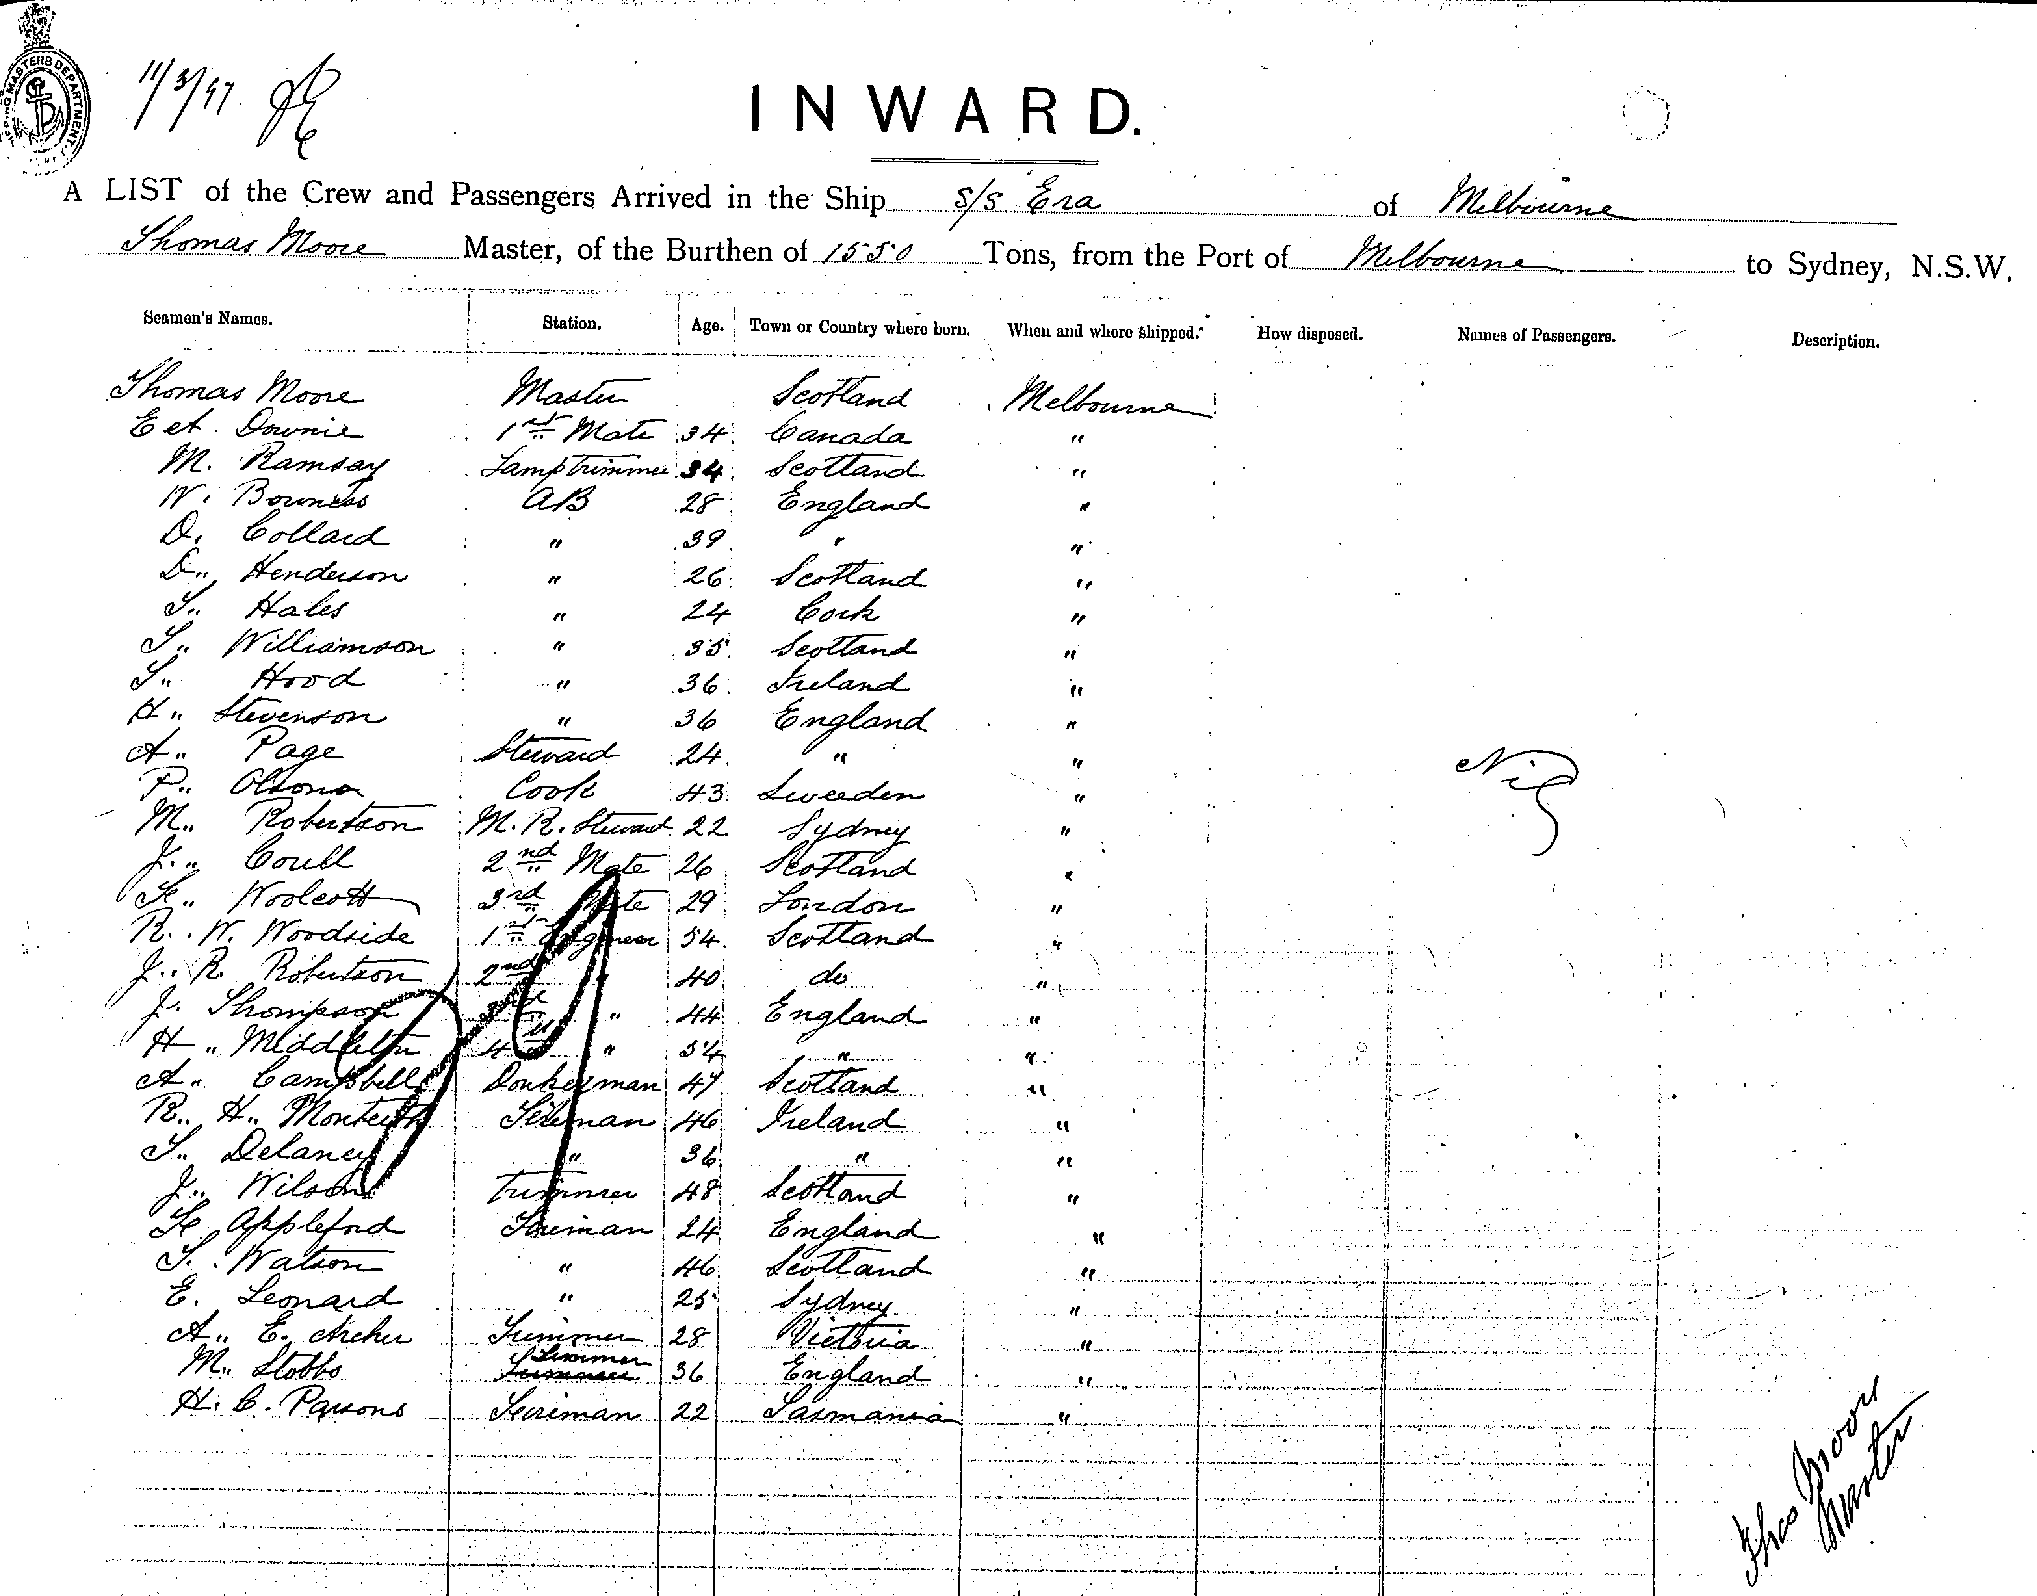 SHIPPING MASTERS DEPARTMENT
11/3/97
INWARD.
A LIST of the Crew and Passengers Arrived in the Ship S/S Era of Melbourne
Thomas Moore Master, of the Burthen of 1550 Tons, from the Port of Melbourne to Sydney, N.S.W.
Seamen's Names. Station. Age. Town or Country where born. When and where shipped. How disposed. Names of Passengers. Description.
Thomas Moore Master Scotland Melbourne
Downie 1st Mate 34 Canada "
M. Ramsay Lamptrimmer 34 Scotland "
W. Bowness AB 28 England "
D. Collard " 39 " "
D.. Henderson " 26 Scotland "
T.. Hales " 24 Cork "
T.. Williamson " 35 Scotland "
T.. Hood " 36 Ireland "
H.. Stevenson " 36 England "
A.. Page Steward 24 " "
P.. Cook 43 Sweeden "
M.. Robertson M. R. Steward 22 Sydney "
J.. Coull 2nd Mate 26 Scotland "
F.. Woolcott 3rd Mate 29 London "
R.. W. Woodside 1st Engineer 54 Scotland "
J.. R. Robertson 2nd " 40 do "
J. Thompson 3rd " 44 England "
H.. Middleton 4th " 54 " "
A.. Campbell Donkeyman 47 Scotland "
R.. H.. Monteith Fireman 46 Ireland "
T.. Delaney " 36 " "
J.. Wilson Trimmer 48 Scotland "
F. Appleford Fireman 24 England "
T.. Watson " 46 Scotland "
E. Leonard " 25 Sydney "
A.. E. Archer Trimmer 28 Victoria "
M.. Stobbs Trimmer 36 England "
H. C. Parsons Fireman 22 Tasmania "
Nil
Thos Moore
Master